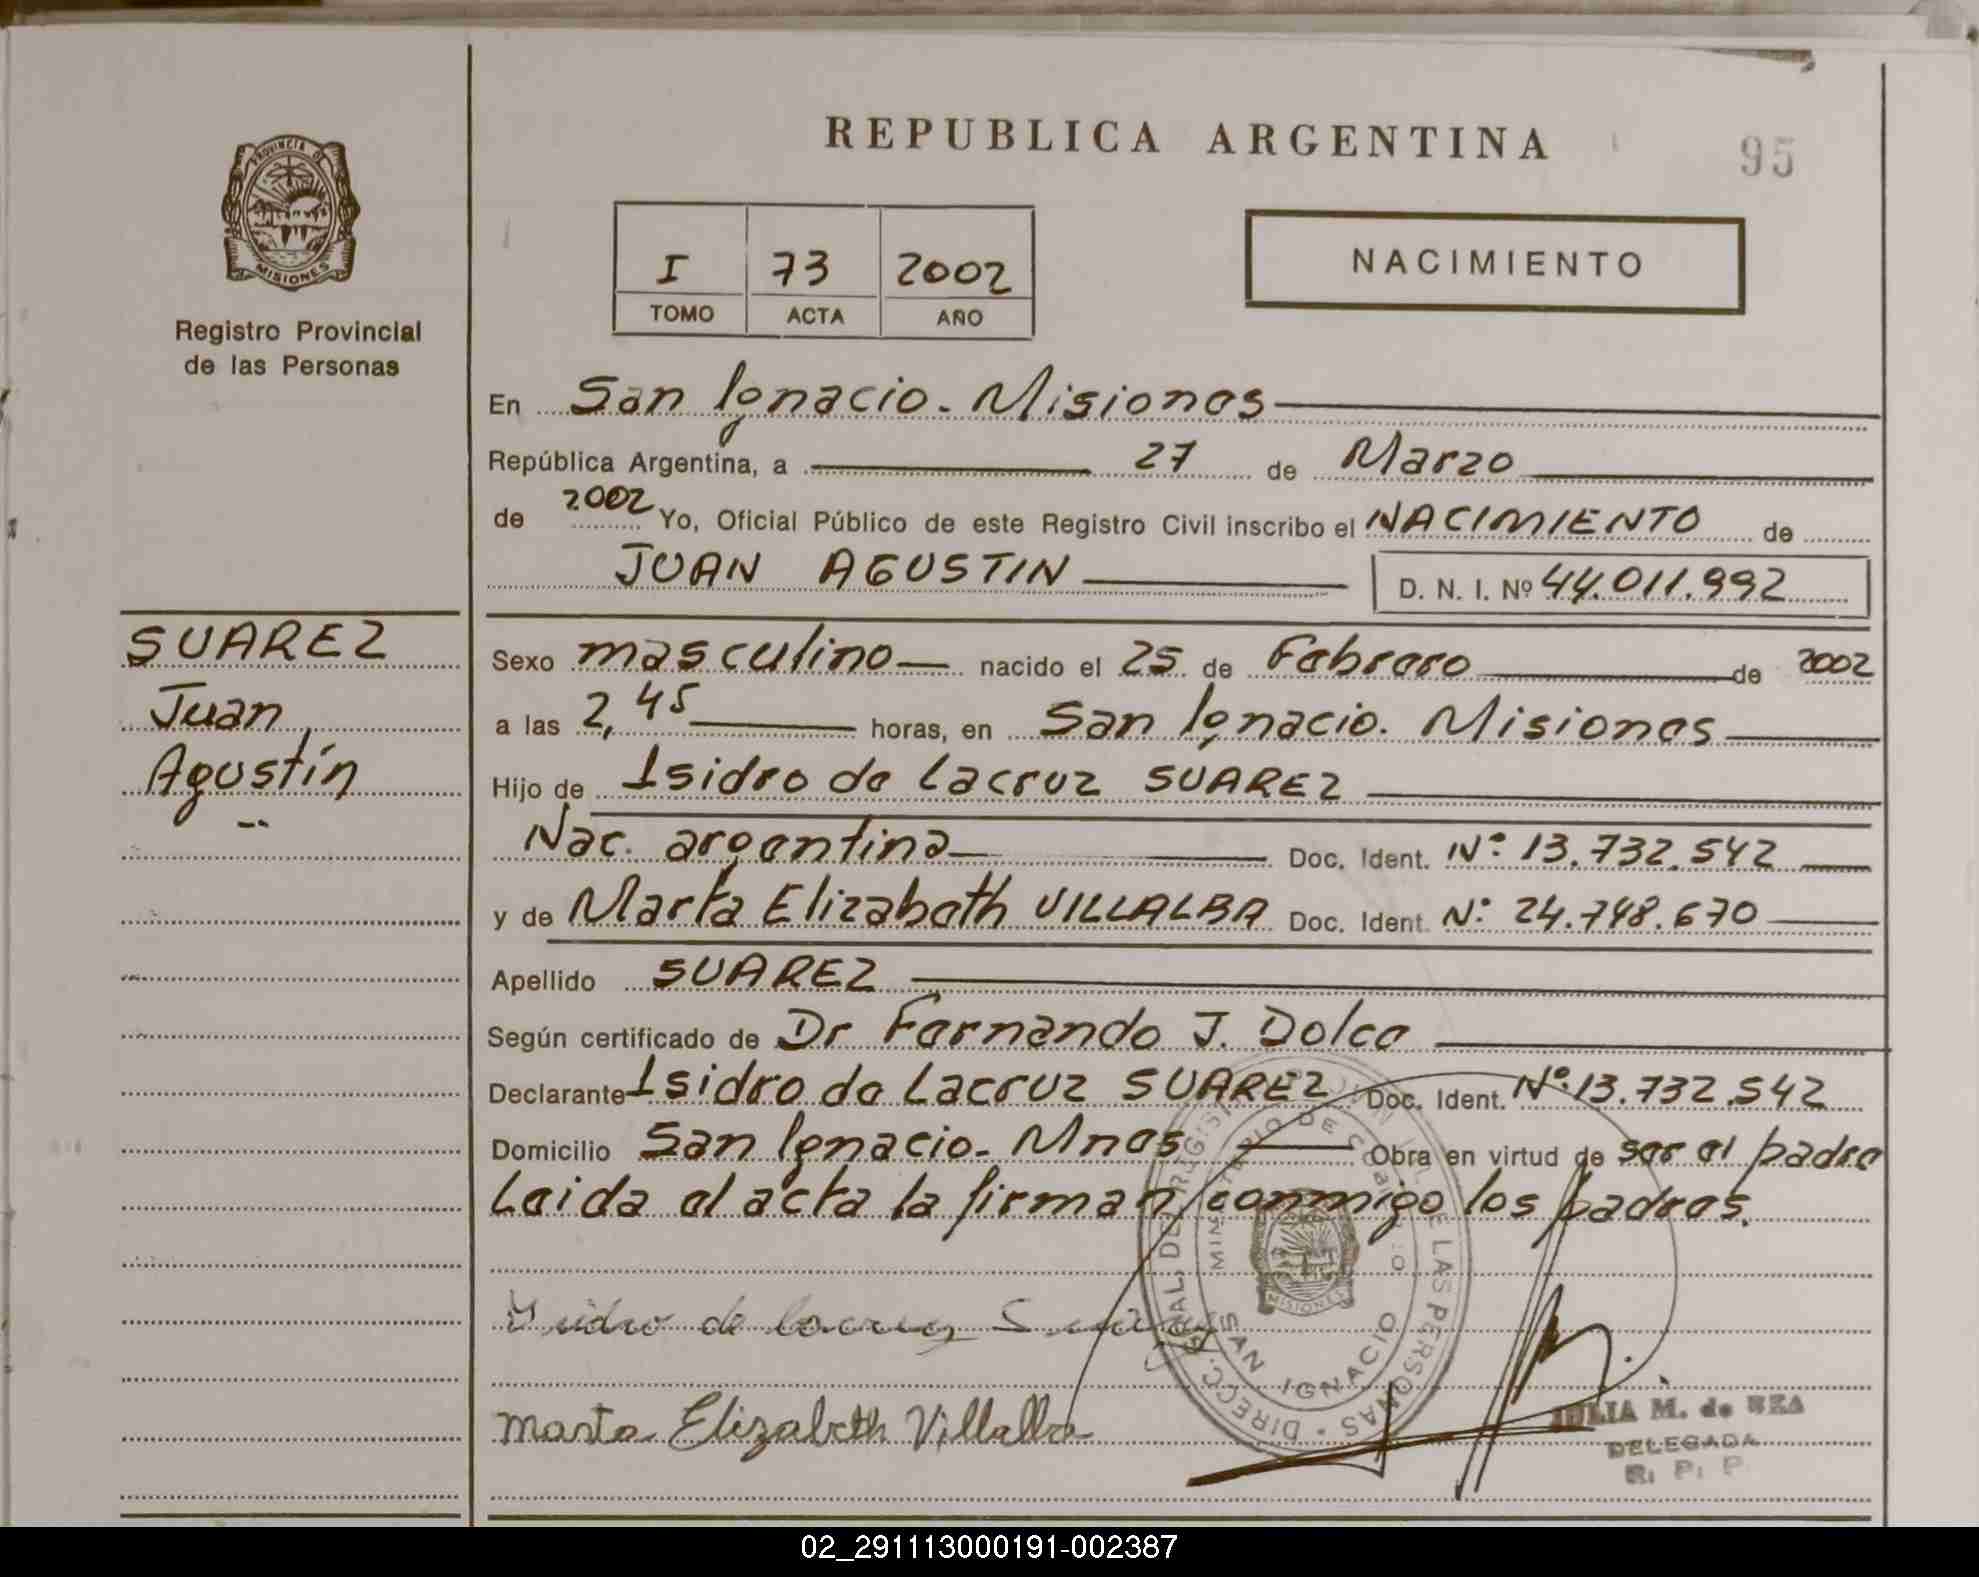 REPUBLICA ARGENTINA
95
PROVINCIA D
MISIONES
Registro Provincial
de las Personas
I 73 2002
TOMO ACTA AÑO
NACIMIENTO
En San Ignacio. Misiones
República Argentina, a 27 de Marzo
de 2002 Yo, Oficial Público de este Registro Civil inscribo el NACIMIENTO de
JUAN AGUSTIN D. N. I. Nº 44.011.992
SUAREZ
Juan
Agustín
Sexo masculino nacido el 25 de Febrero de 2002
a las 2,45 horas, en San Ignacio. Misiones
Hijo de Isidro de Lacruz SUAREZ
Nac. argentina Doc. Ident. Nº 13.732.542
y de Marta Elizabeth VILLALBA Doc. Ident. Nº 24.748.670
Apellido SUAREZ
Según certificado de Dr Fernando J. Dolce
Declarante Isidro de Lacruz SUAREZ Doc. Ident. Nº 13.732.542
Domicilio San Ignacio. Mnes Obra en virtud de ser el padre
Leida el acta la firman conmigo los padres.
Ysidro de lacruz Suarez
Marta Elizabeth Villalba
SAN IGNACIO
MISIONES
DE LAS PERSONAS
JULIA M. de
DELEGADA
R. P. P.
02_291113000191-002387